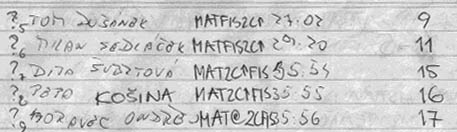 ?.5 TOM DUŠÁNEK MATFIS2CA 27.02 9
?.6 MILAN SEDLÁČEK MATFIS2CA 29.20 11
?.7 DITA ŠVORTOVÁ MAT2CAFIS 35.54 15
?.8 PETO KOŠINA MAT2CAFIS 35.55 16
?.9 MORAVEC ONDŘEJ MAT@2CA 35.56 17